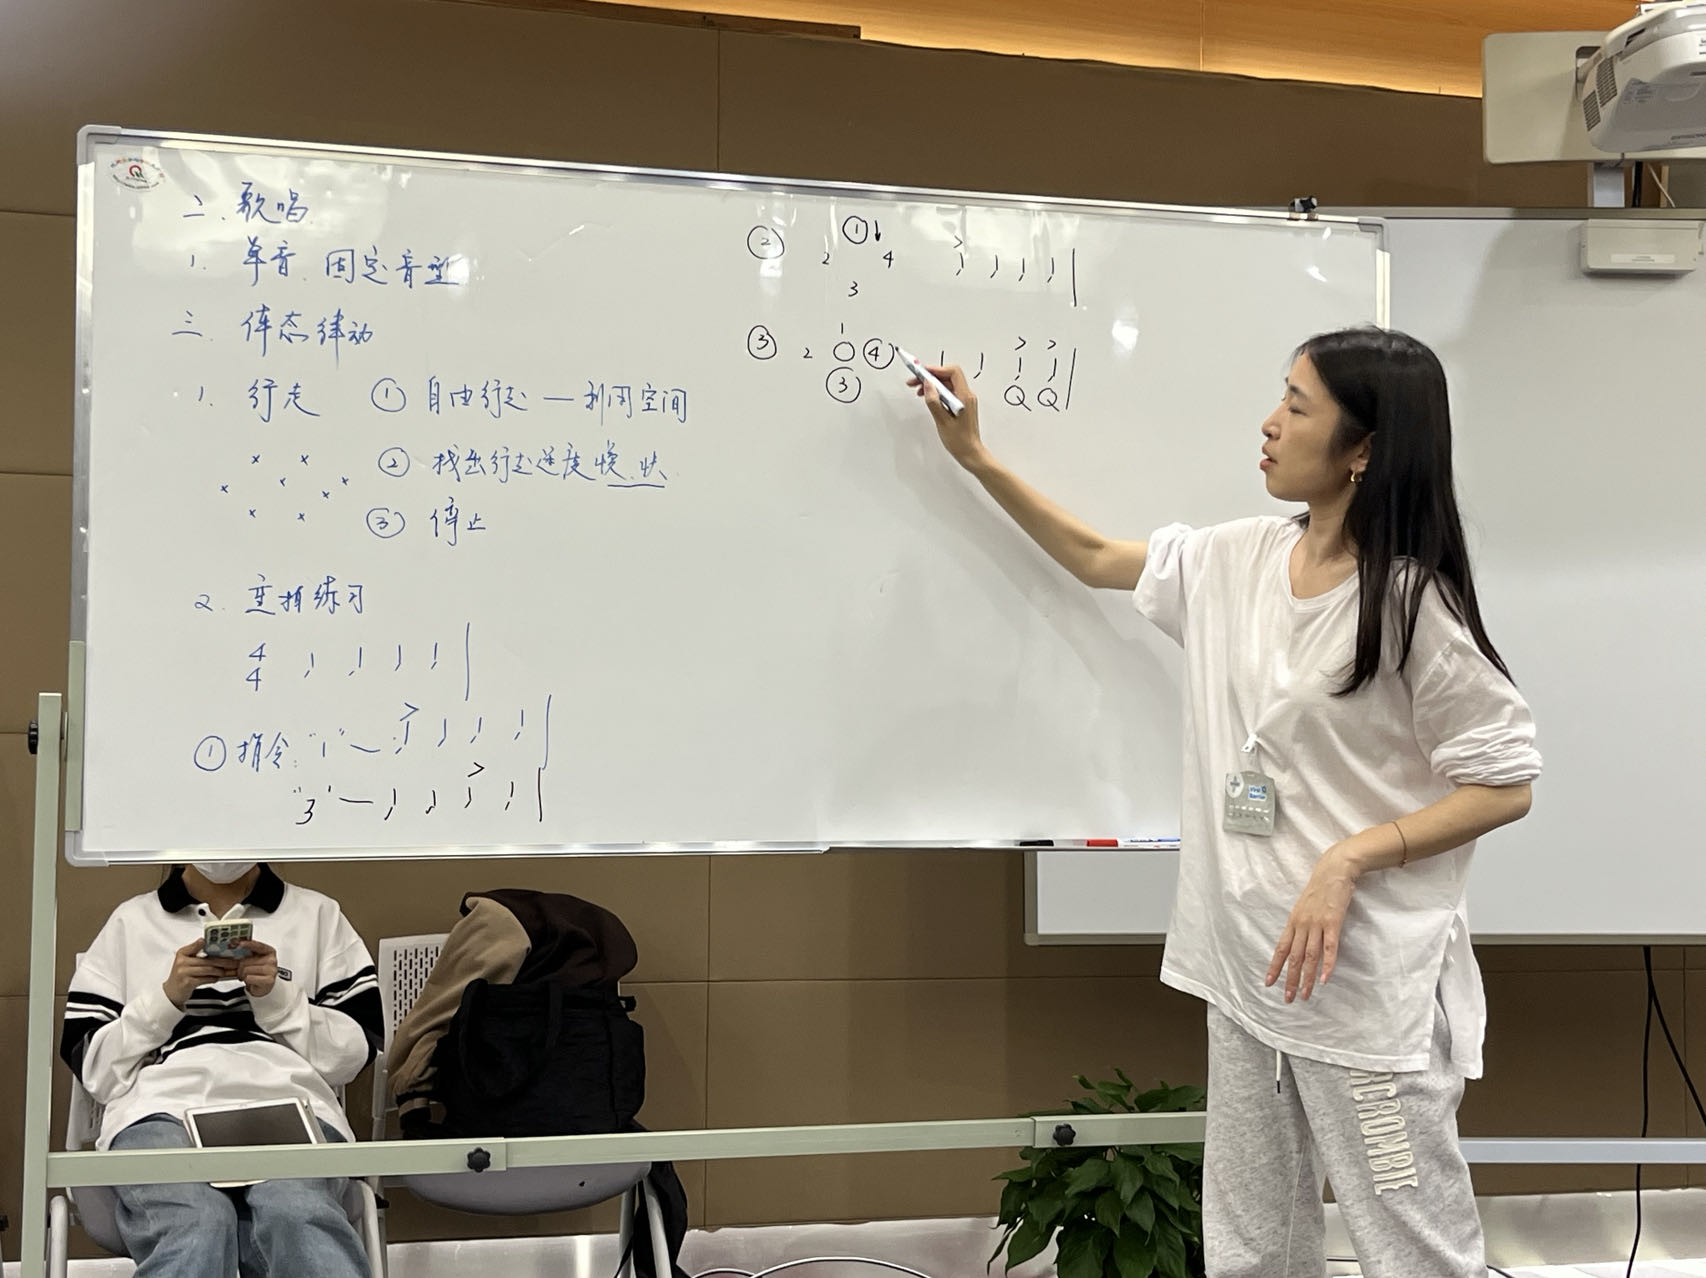 二. 歌唱
1. 单音. 固定音型
三. 体态律动
1. 行走 ① 自由行走 — 利用空间
② 找出行走速度慢.快
③ 停止
2. 重拍练习
4
4
① 指令: "1" — >
"3" — >
② ① ↓ >
2 4
3
③ 1 > >
2 ④
③ Q Q
ERCROMBIE